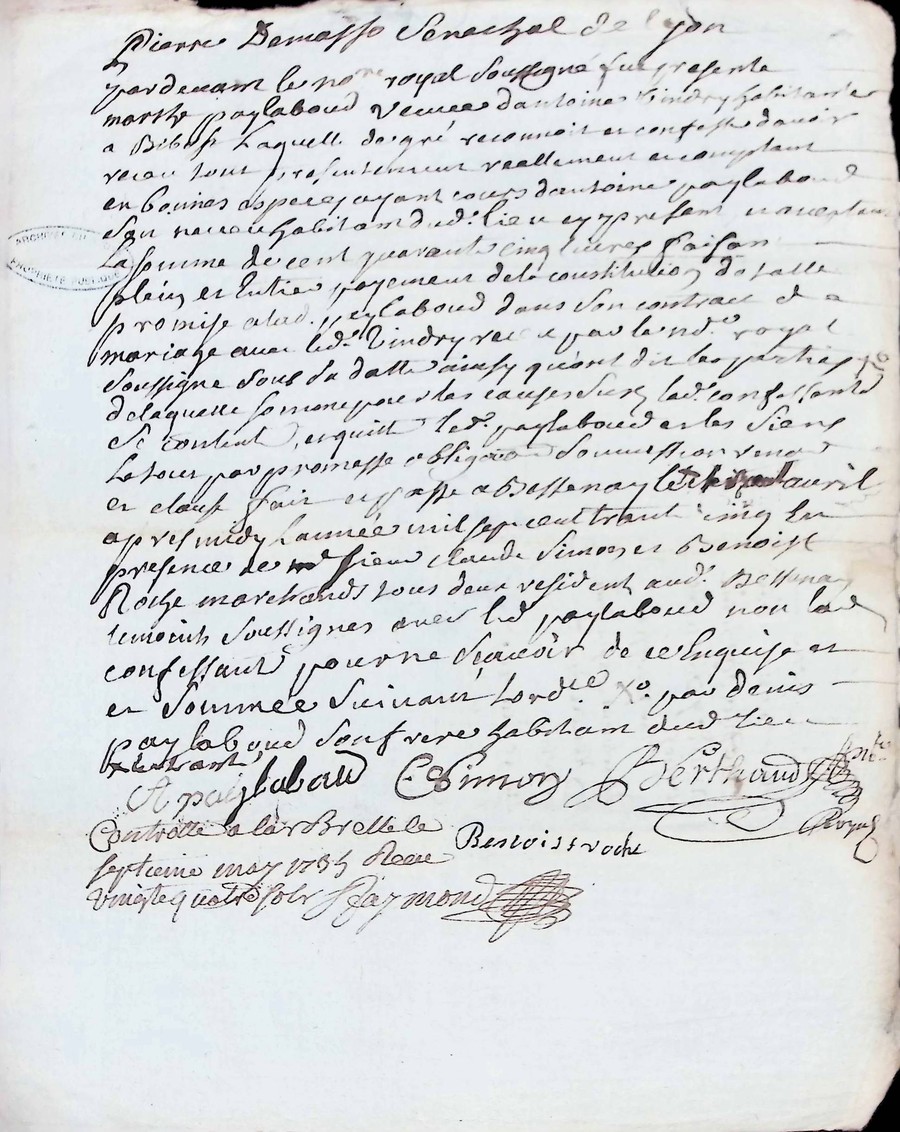 Pierre Demasso Senechal de Lyon
pardevant le no.re royal soussigné fut presente
marthe paylaboud veuve d'antoine Vindry habitante
a Bibost Laquelle de gré reconnoit et confesse d'avoir
receu tout presentement reellement et comptant
en bonnes especes ayant cours d'antoine paylaboud
son neveu habitant dud. lieu cy present et acceptant
La somme de cent quarante cinq livres faisan
plein et Entier payement de la constitution de
promise a lad. paylaboud dans son contract de
mariage avec led. Vindry receu par le nore. royal
soussigné sous sa datte ainsy qu'ont dit les parties
delaquelle somme pour les causes sus lad. confessante
se content et quitte led. paylaboud et les siens
Le tout par promesse obligaon soumission renon
et clause fait et passé a Bessenay le avril
apres midy L'année mil sept cent trante cinq En
presence de sieur claude Simon et Benoist
Roche marchands tous deux resident aud. Bessenay
temoins soussignes avec led paylaboud non lad
confessant pour ne sçavoir de ce Enquise et
et sommée suivant Lord.ce par denis
paylaboud son frere habitant dud lieu
A paylaboud C Simon Berthaud
Royal
Controllé a la Bresle le Benoist roche
septieme may 1735 Receu
vingt quatre sols Raymond
ARCHIVES DU
PROPRIÉTÉ PUBLIQUE